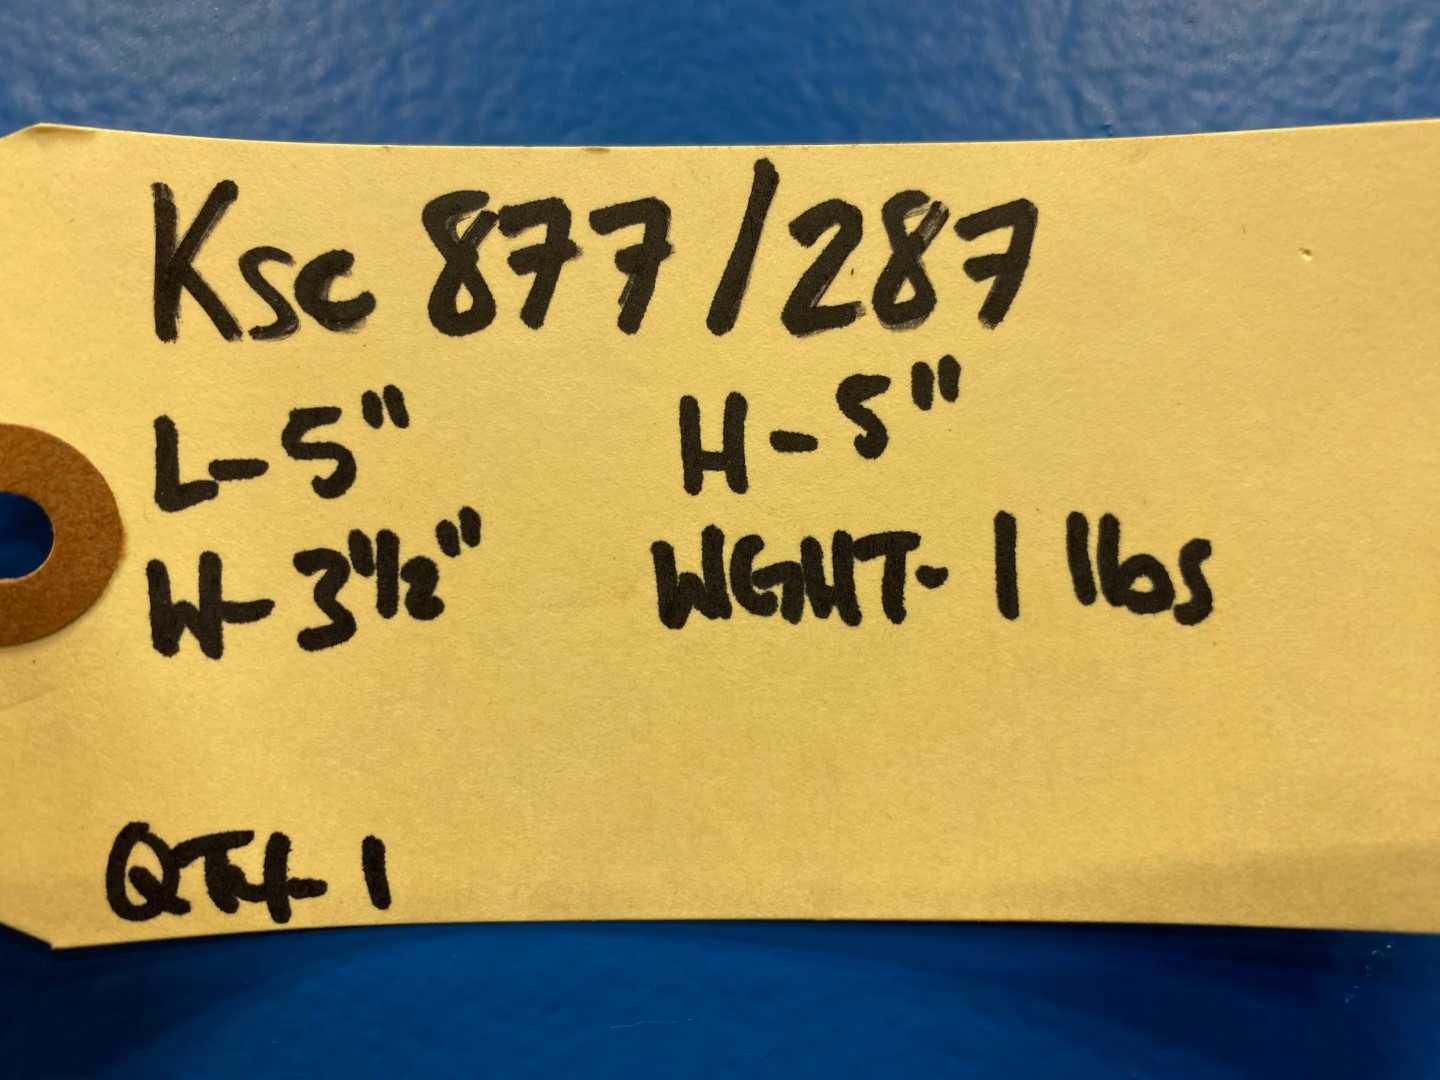 Ksc 877/287
L-5" H-5"
W-3"1/2" WGHT-1 lbs
QTY-1